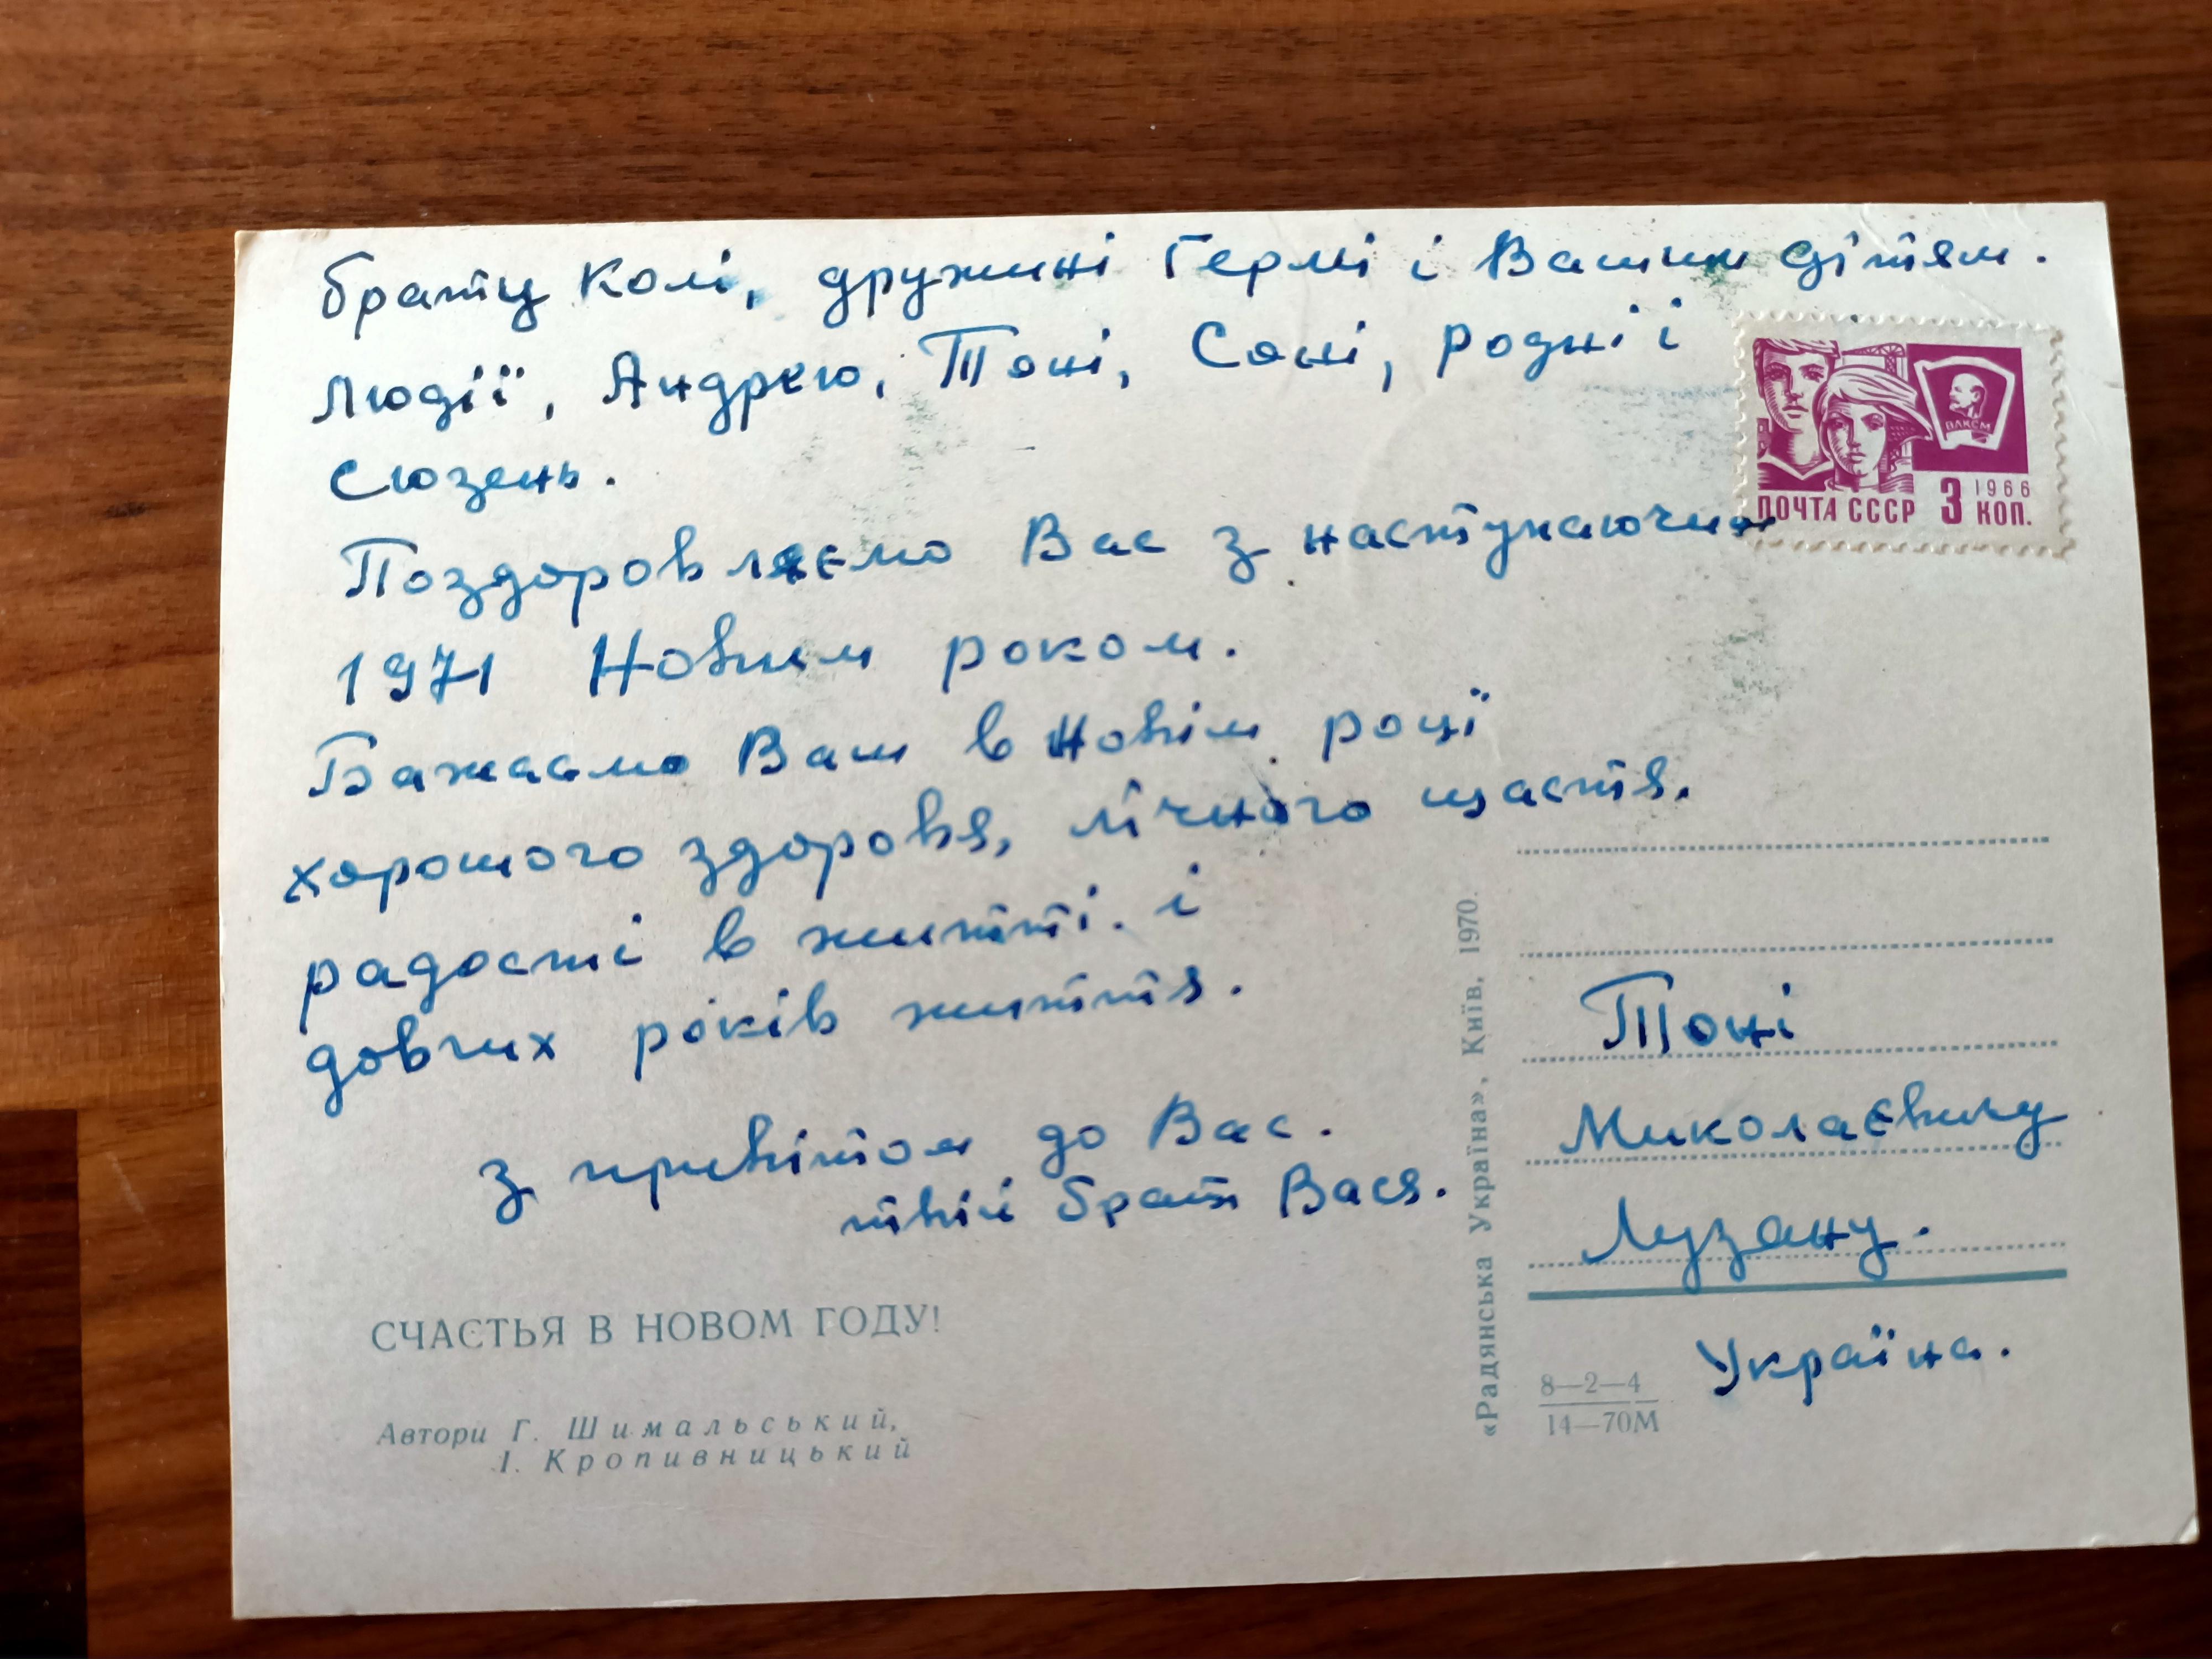 брату Колі, дружині Гермі і Вашим дітям.
Людії, Андрею, Тоні, Соні, родні і
Сюзень.
Поздоровляємо Вас з наступаючим
1971 Новим роком.
Бажаємо Вам в Новім році
хорошого здоровя, лічного щастя.
радості в житті. і
довгих років життя.
з привітом до Вас.
твій брат Вася.
ВЛКСМ
ПОЧТА СССР 3 КОП.
1966
Тоні
Миколаєвичу
Лузану.
Україна.
СЧАСТЬЯ В НОВОМ ГОДУ!
Автори Г. Шимальський,
І. Кропивницький
«Радянська Україна», Київ, 1970.
8—2—4
14—70М